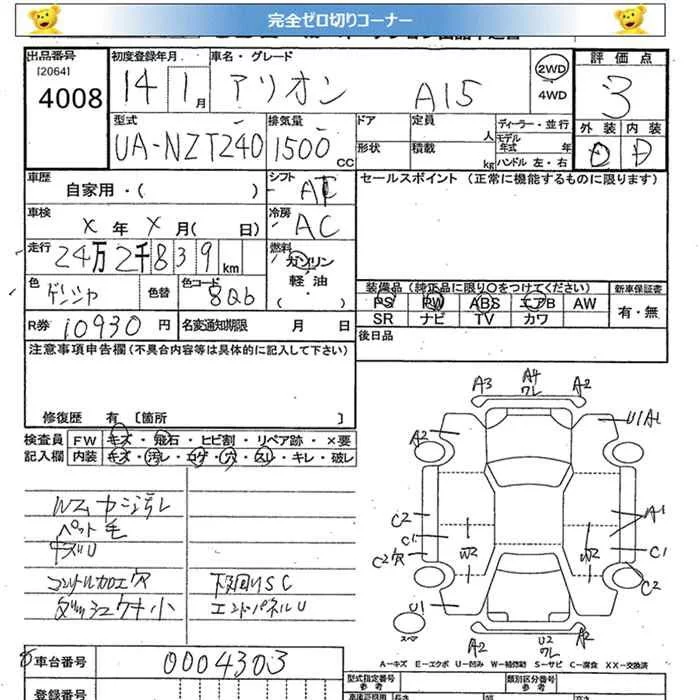 完全ゼロ切りコーナー
出品番号 初度登録年月 車名・グレード 評価点
[2064]
4008 14年 1月 アリオン A15 2WD 4WD 3
型式 排気量 ドア 定員 人 ディーラー・並行 外装 内装
UA-NZT240 1500 CC 形状 積載 kg モデル年式 年 ハンドル 左・右 D D
車歴 自家用・( ) シフト AT セールスポイント (正常に機能するものに限ります)
車検 X年 X月( 日) 冷房 AC
走行 24万2千839km 燃料 ガソリン 軽油 ( ・ )
色 色替 色コード 8Q6 装備品(純正品に限り○をつけてください) 新車保証書
PS PW ABS エアB AW 有・無
R券 10930円 名変通知期限 月 日 SR ナビ TV カワ
後日品
注意事項申告欄(不具合内容等は具体的に記入して下さい)
修復歴 有 [箇所 ]
検査員 FW キズ・飛石・ヒビ割・リペア跡・×要
記入欄 内装 キズ・汚レ・コゲ・穴・スレ・キレ・破レ
ペット毛
キズU
コンソール加工穴 下廻りSC
ダッシュケキ小 エンドパネルU
A3 A4 ワレ A2
A2 U1A1
C2 A1
C1 C1
C2穴 W2 W2 C2
U1
スペア A2 U2 ワレ A2
A-キズ E-エクボ U-凹み W-補修跡 S-サビ C-腐食 XX-交換済
車台番号 0004303 型式指定番号 参考 類別区分番号 参考
登録番号 長さ 幅 高さ